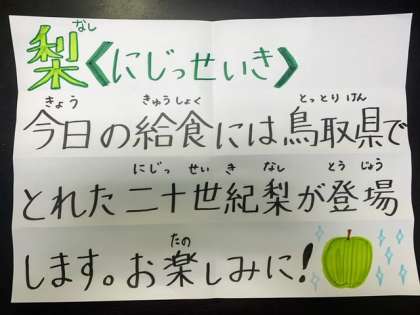 梨《にじっせいき》
なし
きょう きゅうしょく とっとりけん
今日の給食には鳥取県で
にじっ せい き なし とうじょう
とれた二十世紀梨が登場
たの
します。お楽しみに!